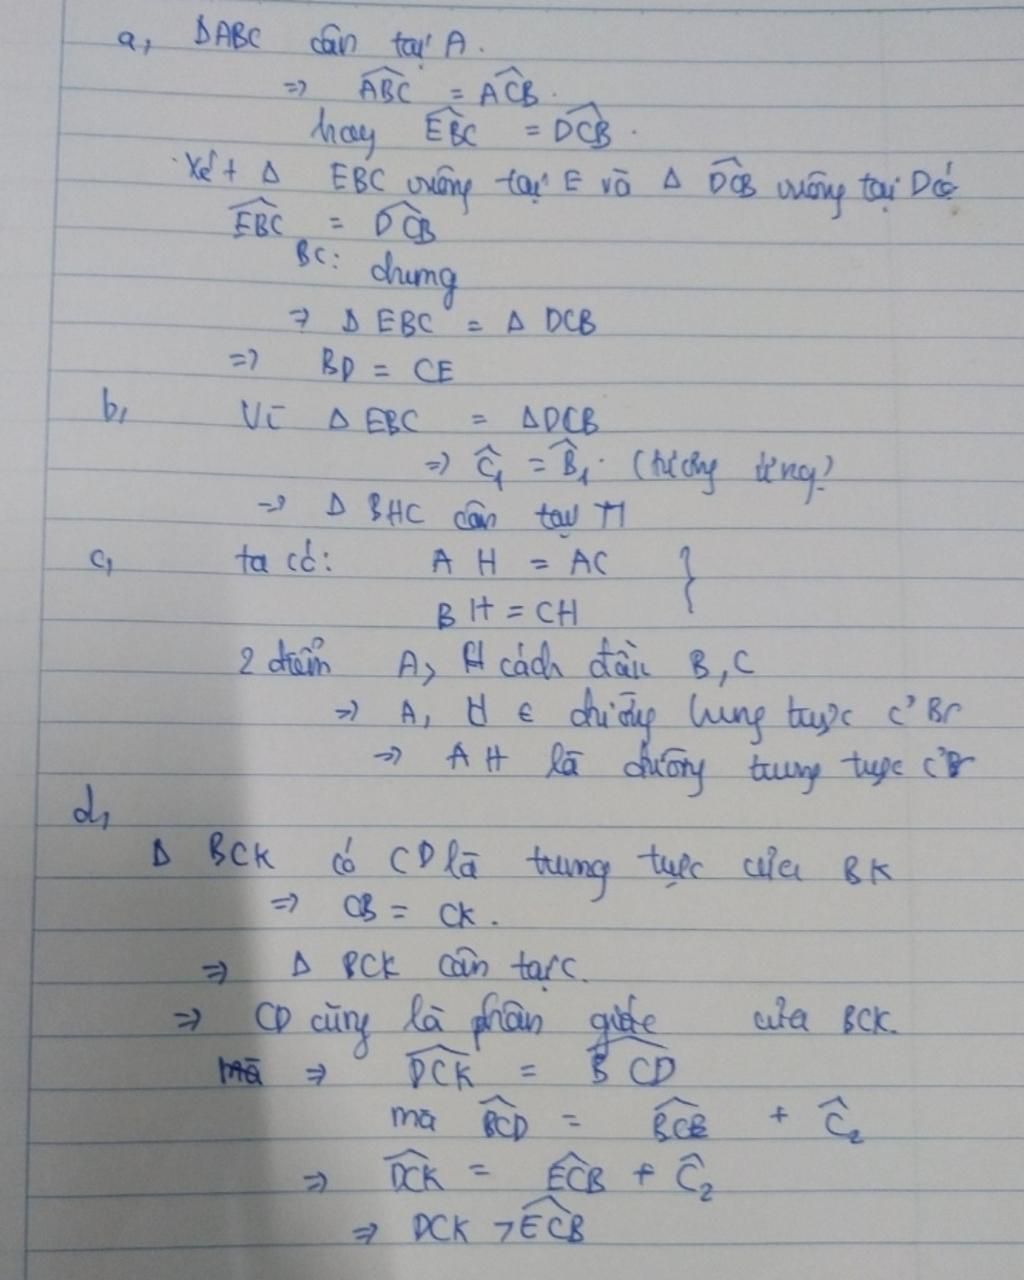 a, ΔABC cân tại A.
=> \widehat{ABC} = \widehat{ACB}.
hay \widehat{EBC} = \widehat{DCB}.
Xét Δ EBC vuông tại E và Δ \widehat{DCB} vuông tại D có
\widehat{EBC} = \widehat{DCB}
BC: chung
=> Δ EBC = Δ DCB
=> BD = CE
b, Vì Δ EBC = ΔDCB
=> \widehat{C}₁ = \widehat{B}₁. (tương ứng)
=> Δ BHC cân tại H
c, ta có: A H = AC }
B H = CH
2 điểm A, H cách đều B, C
=> A, H ∈ đường trung trực c' BC
=> A H là đường trung trực c'
d,
Δ BCK có CD là trung trực của BK
=> CB = CK.
=> Δ BCK cân tại C.
=> CD cũng là phân giác của BCK.
=> \widehat{DCK} = \widehat{BCD}
mà \widehat{BCD} = \widehat{BCE} + \widehat{C}₂
=> \widehat{DCK} = \widehat{ECB} + \widehat{C}₂
=> DCK > \widehat{ECB}